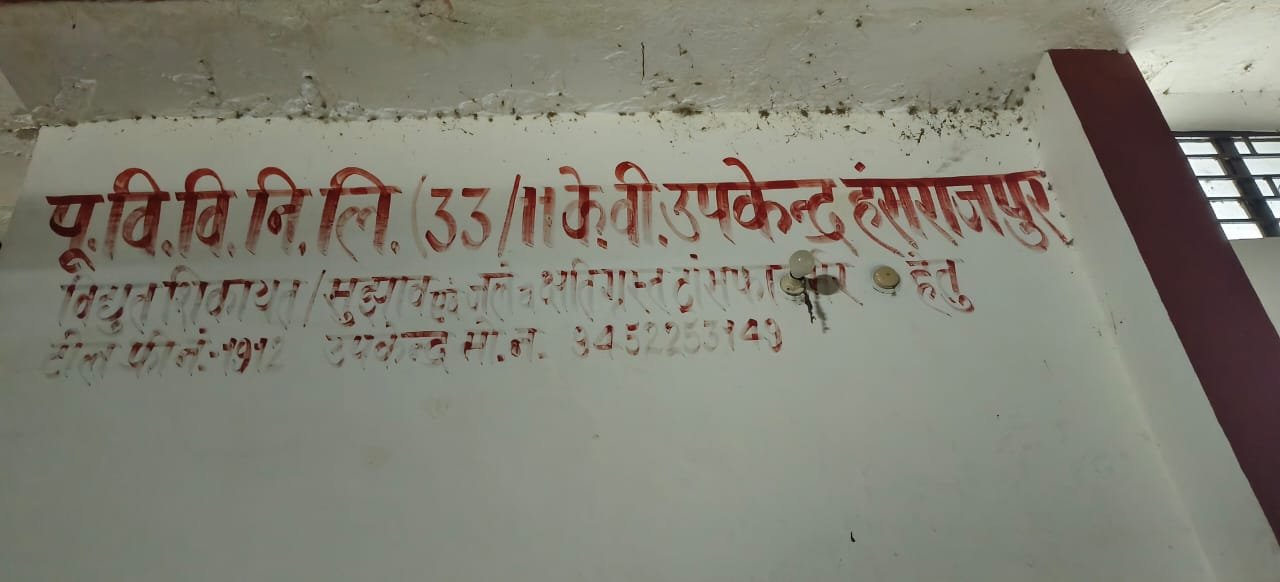 पू.वि.वि.नि.लि. (33/11 के.वी. उपकेन्द्र हंसराजपुर
विद्युत शिकायत / सुझाव एवं जले व क्षतिग्रस्त ट्रांसफार्मर हेतु
टोल फ्री नं.- 1912 उपकेन्द्र मो.न. 9452253149